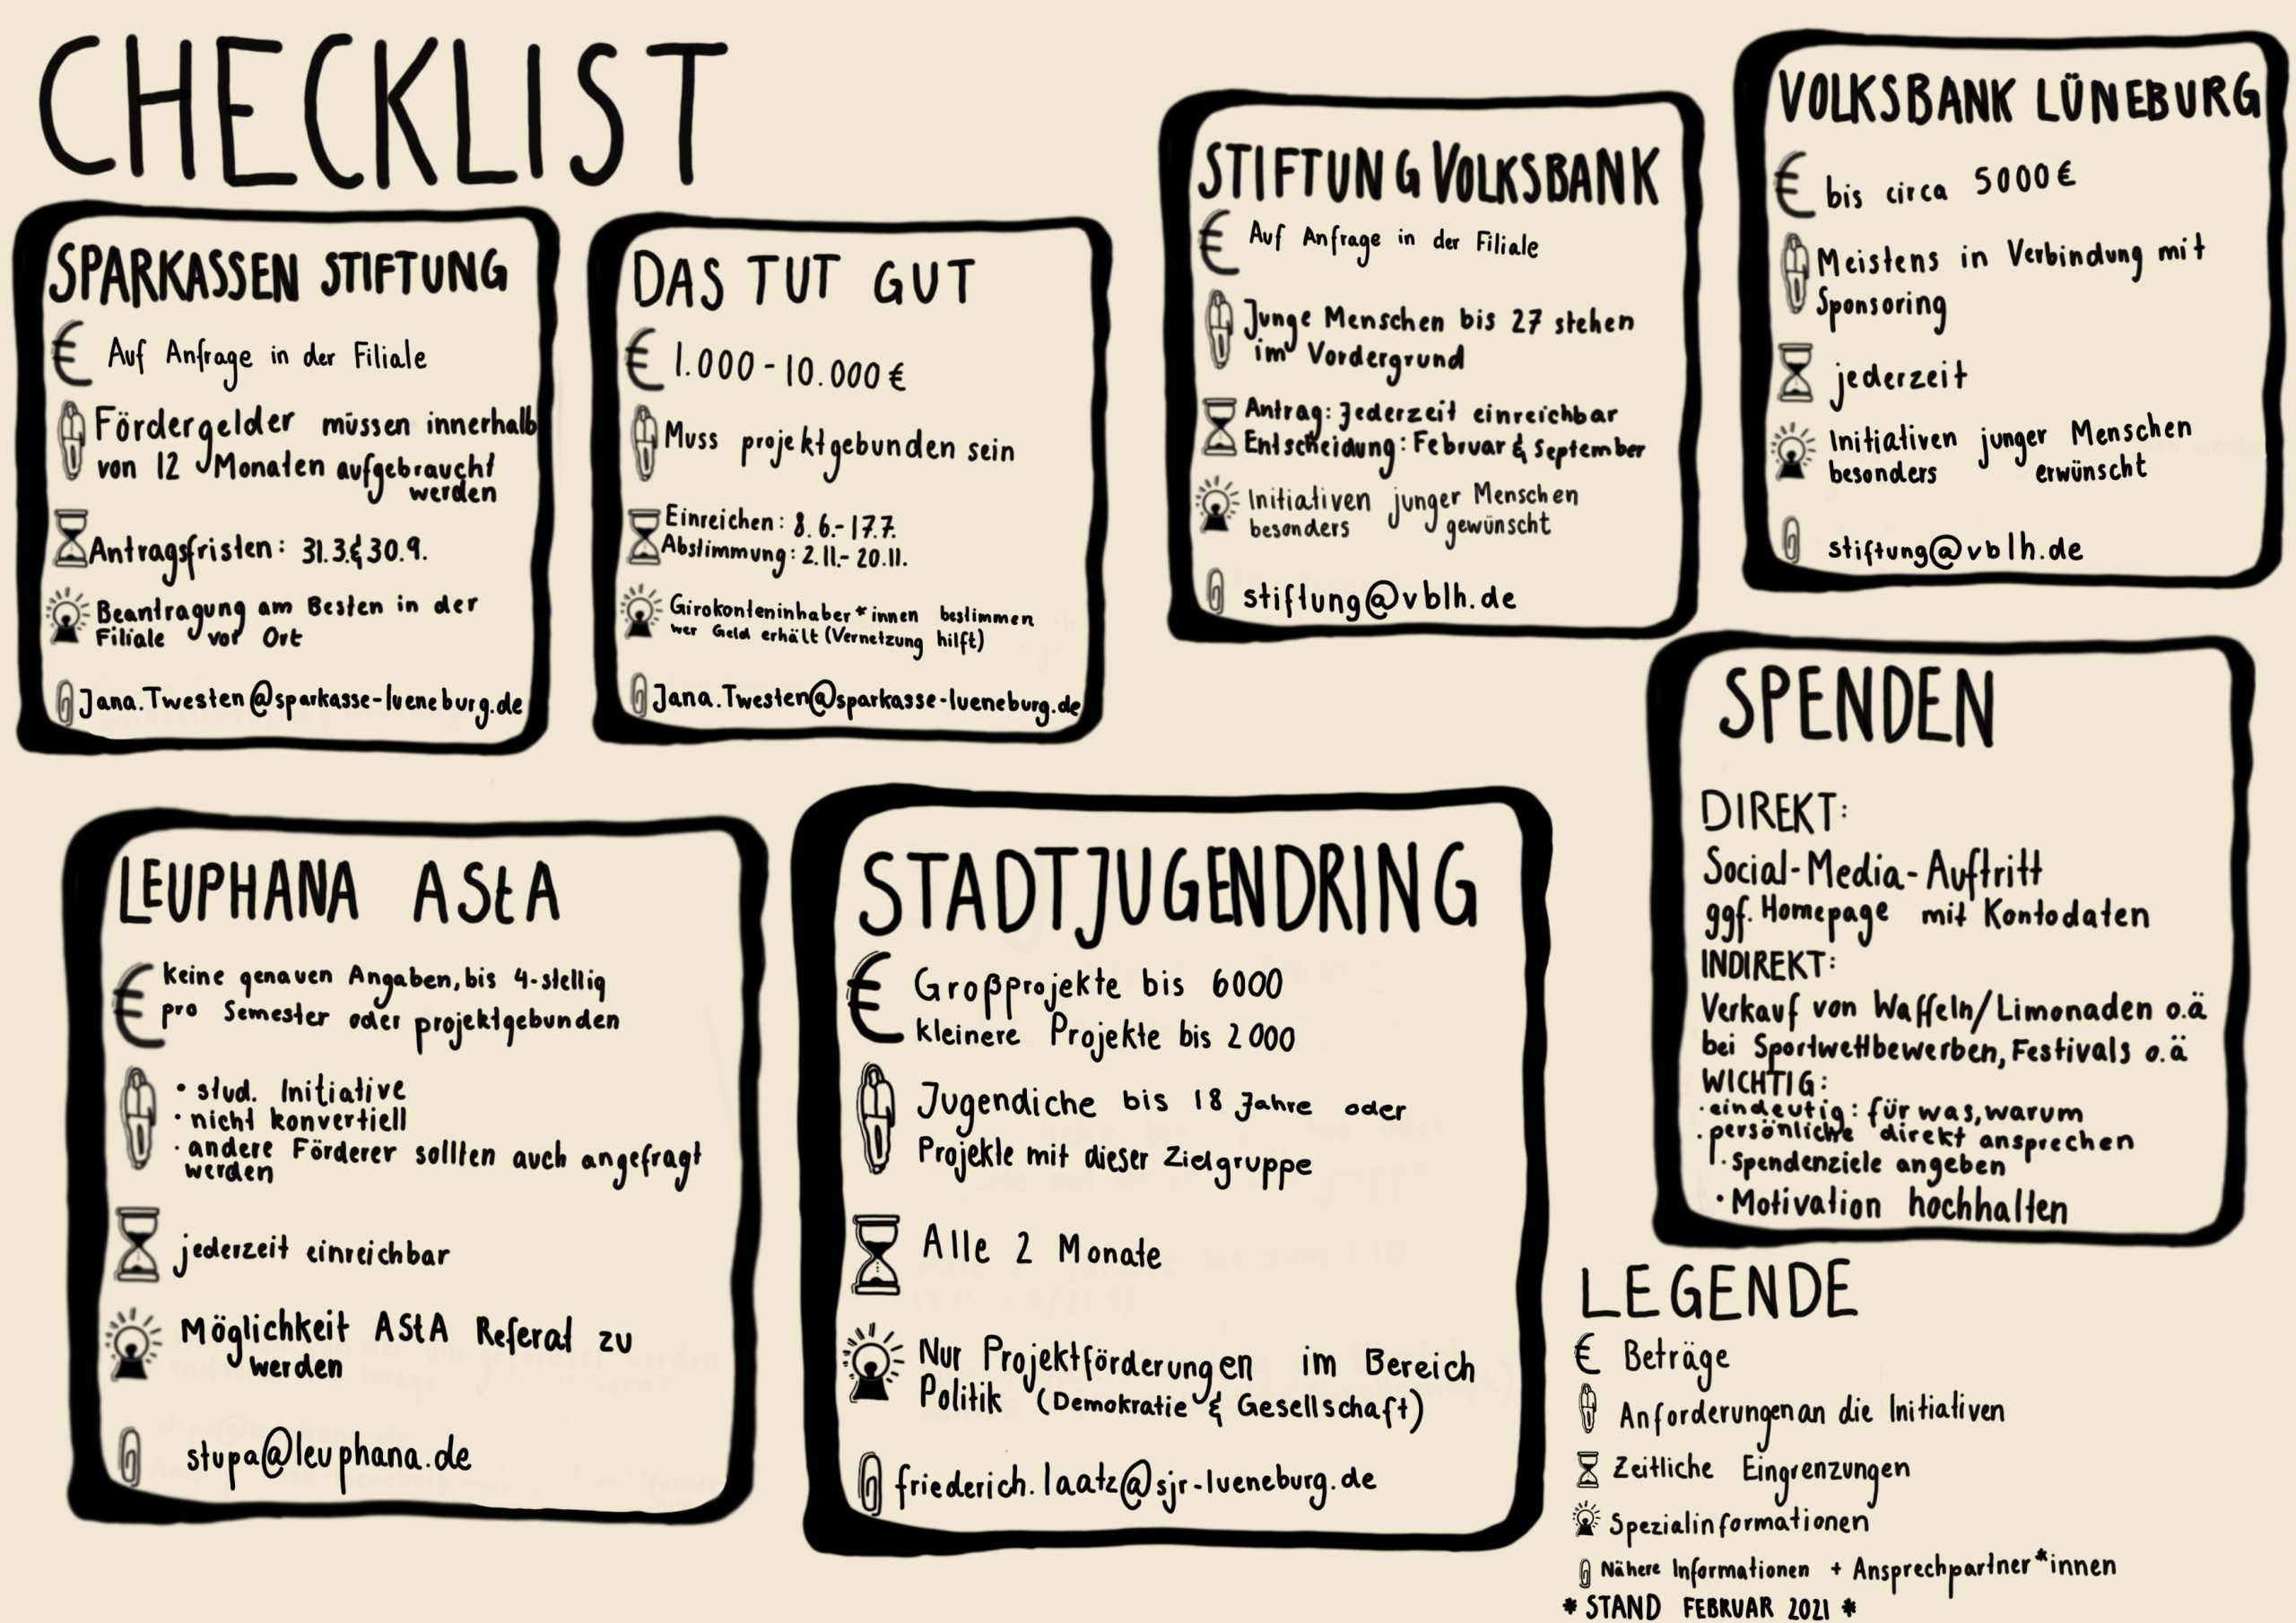 CHECKLIST
SPARKASSEN STIFTUNG
€ Auf Anfrage in der Filiale
Fördergelder müssen innerhalb
von 12 Monaten aufgebraucht
werden
Antragsfristen: 31.3.& 30.9.
Beantragung am Besten in der
Filiale vor Ort
Jana.Twesten@sparkasse-lueneburg.de
DAS TUT GUT
€ 1.000-10.000€
Muss projektgebunden sein
Einreichen: 8.6.-17.7.
Abstimmung: 2.11.- 20.11.
Girokonteninhaber*innen bestimmen
wer Geld erhält (Vernetzung hilft)
Jana.Twesten@sparkasse-lueneburg.de
STIFTUNG VOLKSBANK
€ Auf Anfrage in der Filiale
Junge Menschen bis 27 stehen
im Vordergrund
Antrag: Jederzeit einreichbar
Entscheidung: Februar & September
Initiativen junger Menschen
besonders gewünscht
stiftung@vblh.de
VOLKSBANK LÜNEBURG
€ bis circa 5000€
Meistens in Verbindung mit
Sponsoring
jederzeit
Initiativen junger Menschen
besonders erwünscht
stiftung@vblh.de
LEUPHANA AStA
€ keine genauen Angaben, bis 4-stellig
pro Semester oder projektgebunden
• stud. Initiative
• nicht konvertiell
• andere Förderer sollten auch angefragt
werden
jederzeit einreichbar
Möglichkeit AStA Referat zu
werden
stupa@leuphana.de
STADTJUGENDRING
€ Großprojekte bis 6000
kleinere Projekte bis 2000
Jugendiche bis 18 Jahre oder
Projekte mit dieser Zielgruppe
Alle 2 Monate
Nur Projektförderungen im Bereich
Politik (Demokratie & Gesellschaft)
friederich.laatz@sjr-lueneburg.de
SPENDEN
DIREKT:
Social-Media-Auftritt
ggf. Homepage mit Kontodaten
INDIREKT:
Verkauf von Waffeln/Limonaden o.ä
bei Sportwettbewerben, Festivals o.ä
WICHTIG:
• eindeutig: für was, warum
• persönliche direkt ansprechen
• Spendenziele angeben
• Motivation hochhalten
LEGENDE
€ Beträge
Anforderungen an die Initiativen
Zeitliche Eingrenzungen
Spezialinformationen
Nähere Informationen + Ansprechpartner*innen
* STAND FEBRUAR 2021 *